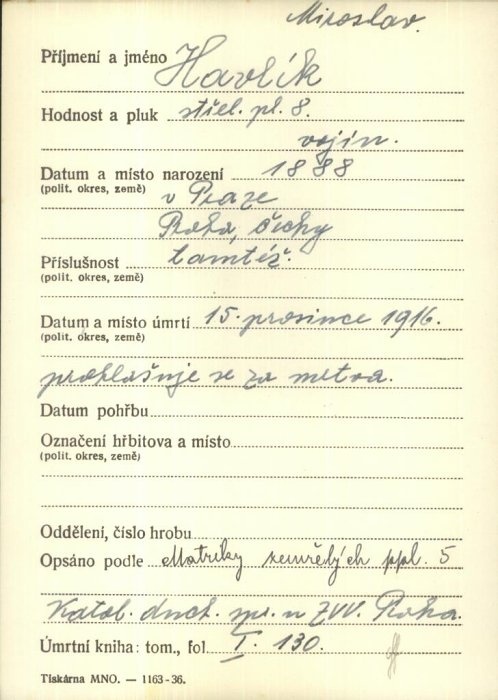 Miroslav.
Příjmení a jméno Havlík
Hodnost a pluk střel. pl. 8.
vojín.
Datum a místo narození 1888
(polit. okres, země) v Praze
Praha, Čechy
Příslušnost tamtéž.
(polit. okres, země)
Datum a místo úmrtí 15. prosince 1916.
(polit. okres, země)
prohlašuje se za mrtva.
Datum pohřbu
Označení hřbitova a místo
(polit. okres, země)
Oddělení, číslo hrobu
Opsáno podle Matriky zemřelých ppl. 5
Katol. duch. spr. u ZVV. Praha.
Úmrtní kniha: tom., fol. I. 130.
Tiskárna MNO. — 1163-36.